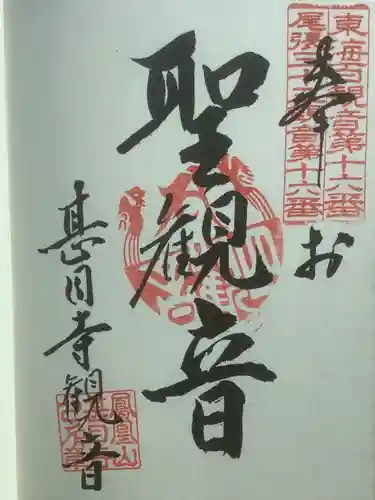 東海百観音第十六番
尾張三十三観音第十六番
奉拝
聖観音
甚目寺観音
鳳凰山